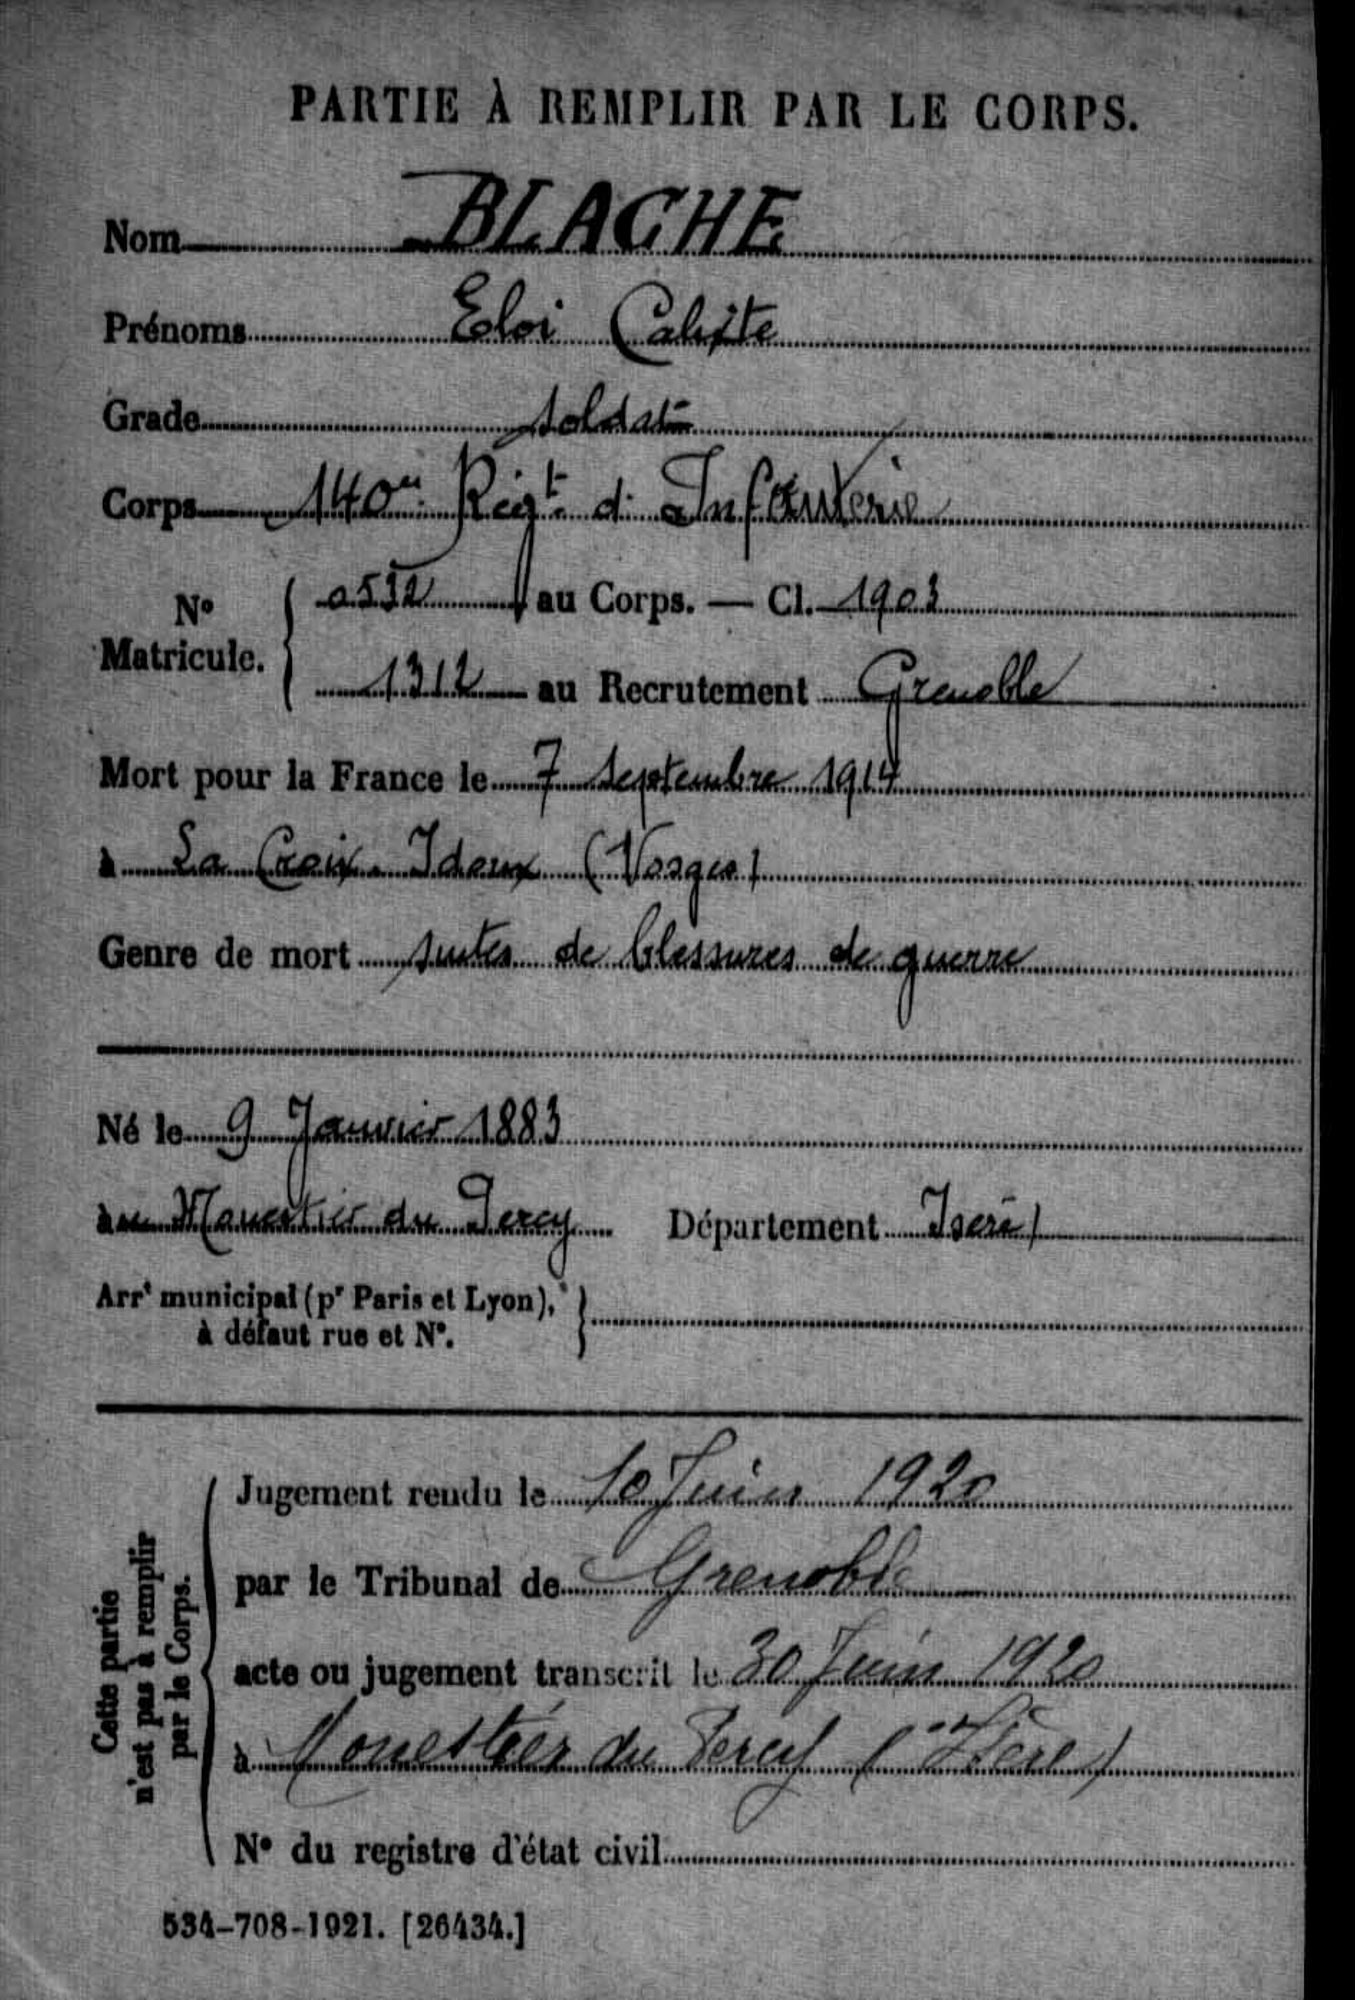 PARTIE À REMPLIR PAR LE CORPS.
Nom BLACHE
Prénoms Eloi Calixte
Grade Soldat
Corps 140e Régt d'Infanterie
No Matricule. 0532 au Corps. — Cl. 1903
1312 au Recrutement Grenoble
Mort pour la France le 7 septembre 1914
à La Croix Idoux (Vosges)
Genre de mort suites de blessures de guerre
Né le 9 Janvier 1883
au Monestier du Percy Département Isère)
Arrt municipal (pr Paris et Lyon),
à défaut rue et No.
Cette partie
n'est pas à remplir
par le Corps.
Jugement rendu le 10 Juin 1920
par le Tribunal de Grenoble
acte ou jugement transcrit le 30 Juin 1920
à Monestier du Percy (Isère)
No du registre d'état civil
534-708-1921. [26434.]